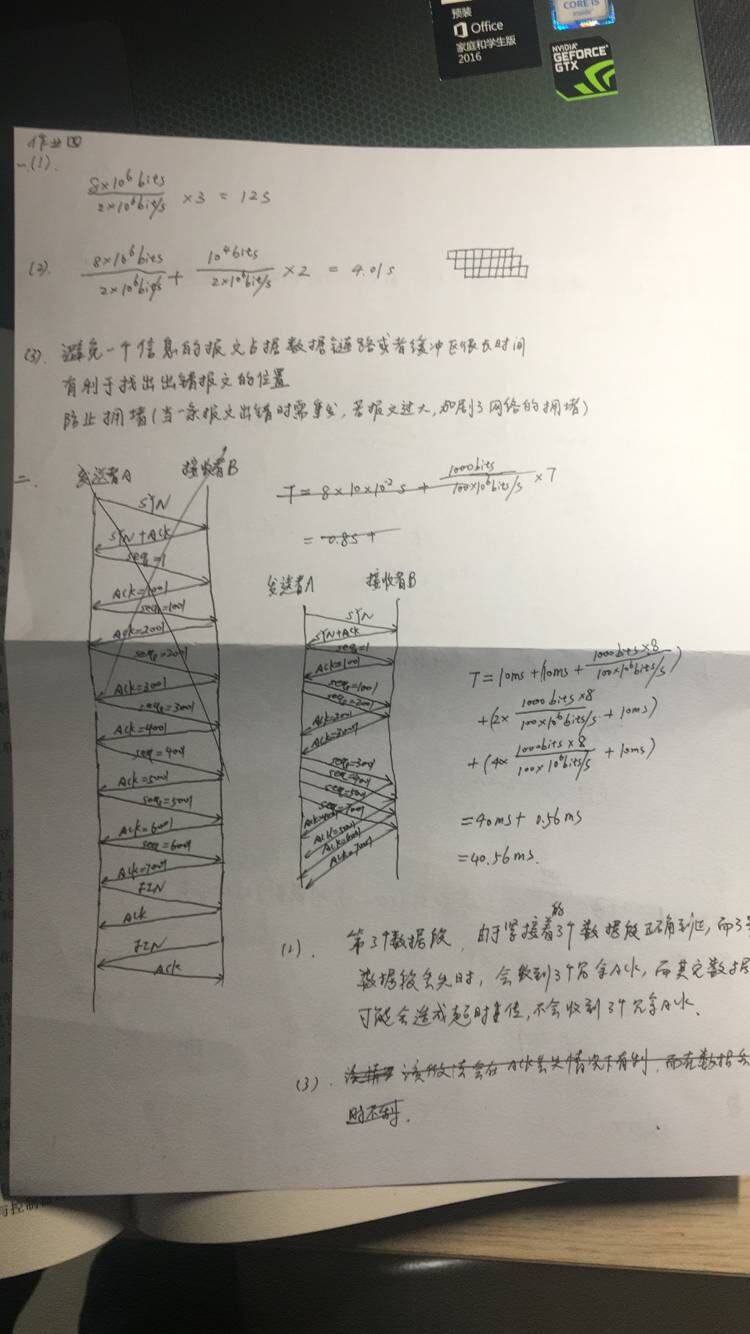 预装
Office
家庭和学生版
2016
CORE i5
inside
NVIDIA
GEFORCE
GTX
作业四
一.(1).
8×10⁶bits / 2×10⁶bit/s ×3 = 12s
(2). 8×10⁶bits / 2×10⁶bit/s + 10⁴bits / 2×10⁶bit/s ×2 = 4.01s
(3). 避免一个信息的报文占据数据链路或者缓冲区很长时间
有利于找出出错报文的位置
防止拥堵(当一条报文出错时需重发, 若报文过大, 加剧了网络的拥堵)
二.
发送者A 接收者B
SYN
SYN+ACK
seq=1
Ack=1001
seq=1001
Ack=2001
seq=2001
Ack=3001
seq=3001
Ack=4001
seq=4001
Ack=5001
seq=5001
Ack=6001
seq=6001
Ack=7001
FIN
Ack
FIN
Ack
T = 8×10×10⁻² s + 1000bits / 100×10⁶bits/s ×7
= 0.8s +
发送者A 接收者B
SYN
SYN+Ack
seq=1
Ack=1001
seq=1001
seq=2001
Ack=2001
Ack=3001
seq=3001
seq=4001
seq=5001
Ack=5001
Ack=6001
Ack=7001
T = 10ms + (10ms + 1000bits×8 / 100×10⁶bits/s)
+ (2× 1000bits×8 / 100×10⁶bits/s + 10ms)
+ (4× 1000bits×8 / 100×10⁶bits/s + 10ms)
= 40ms + 0.56ms
= 40.56ms.
(2). 第3个数据段, 由于紧接着的3个数据段正确到达, 而3号
数据段丢失时, 会收到3个冗余Ack, 而其它数据
可能会造成超时重传, 不会收到3个冗余Ack.
(3). 该做法会在ACK丢失情况下有利, 而在数据丢
时不利.